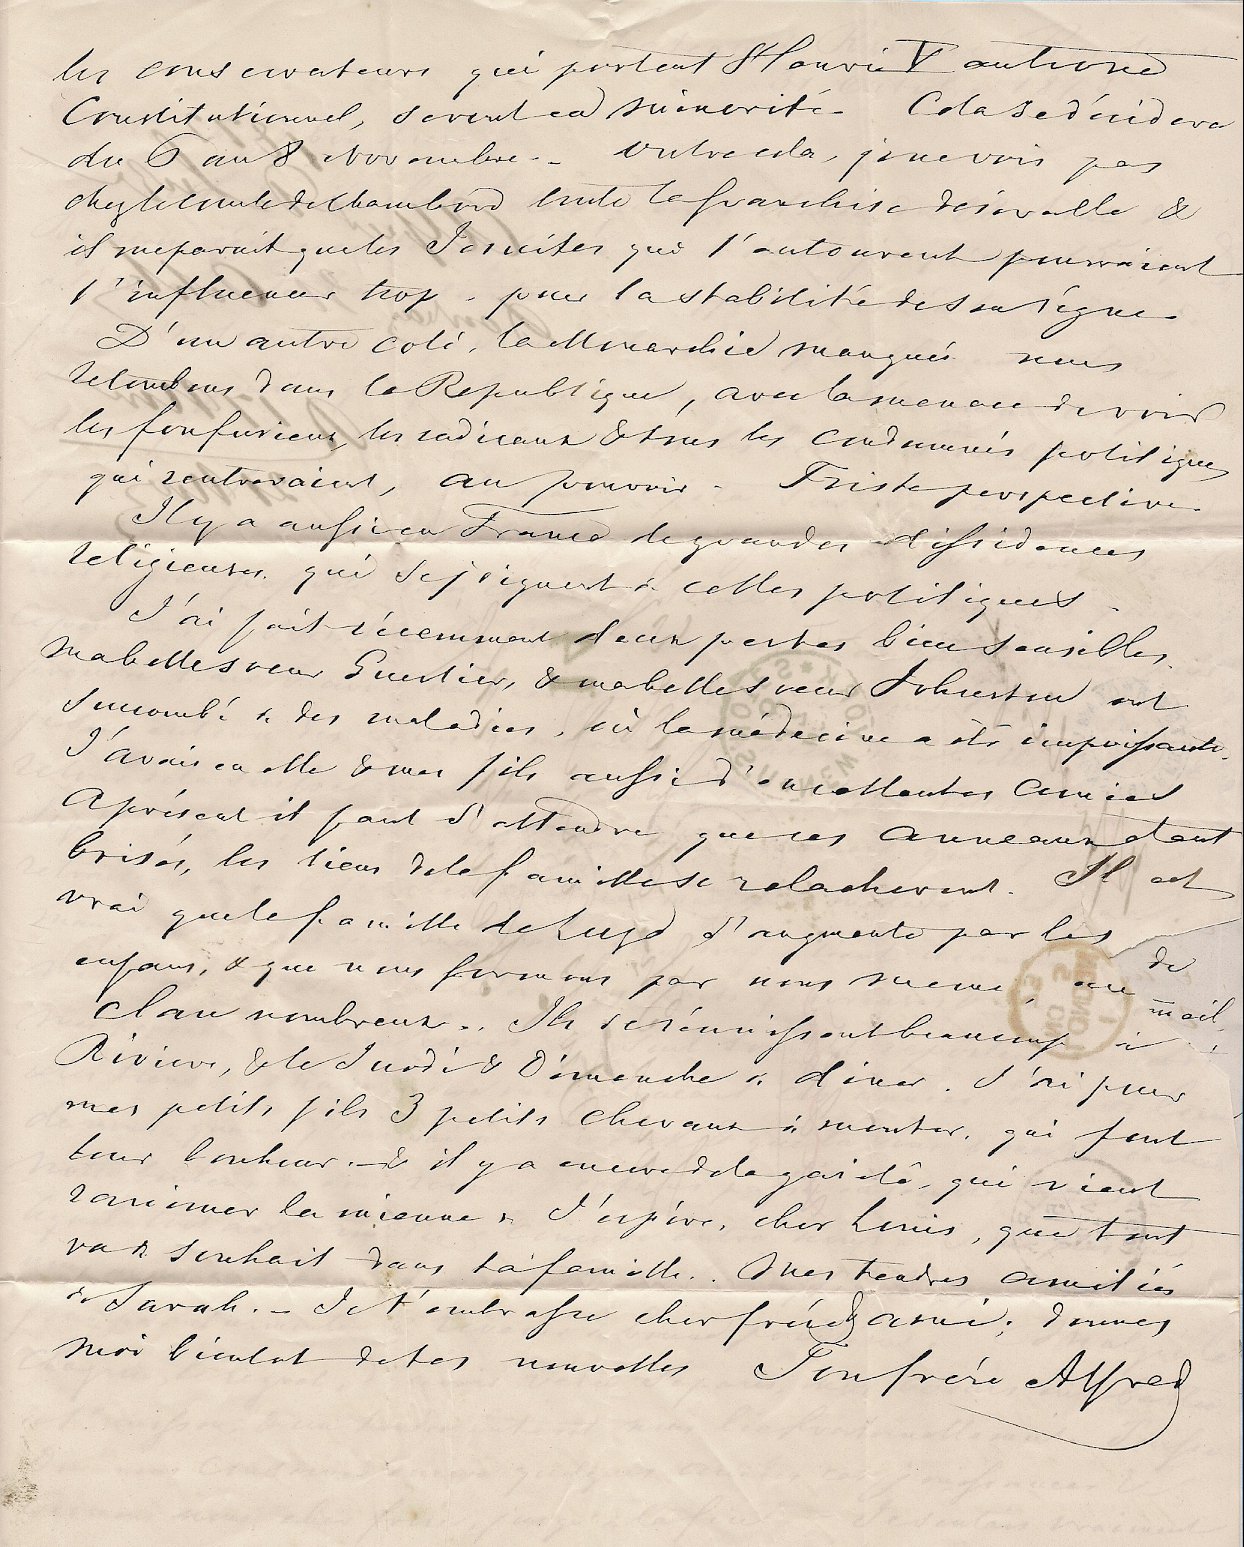 les conservateurs qui portent Henri V au trone
Constitutionnel, seront en minorité. Cela se décidera
du 6 au 8 Novembre. - Outre cela, je ne vois pas
chez le Comte de Chambord toute la franchise désirable &
il me parait que les Jesuites qui l'entourent pourraient
l'influencer trop, pour la stabilité de son règne.
D'un autre coté, la Monarchie manquée nous
retombons dans la Republique, avec la menace de voir
les les radicaux & tous les condamnés politiques
qui rentreraient, au pouvoir. Triste perspective.
Il y a aussi en France de grandes dissidences
religieuses qui se joignent à celles politiques.
J'ai fait récemment deux pertes bien sensibles.
ma belle soeur Guestier, & ma belle soeur Johnston ont
succombé à des maladies, où la médecine a été impuissante.
J'avais en elle & mes fils aussi d'excellentes amies
Aprésent il faut s'attendre que ces anneaux étant
brisés, les liens de la famille se relacheront. Il est
vrai que la famille de Luze s'augmente par les
enfans, & que nous formons par nous meme, un
de
mail
clan nombreux. Ils se réunissent beaucoup à
Riviere, & le Jeudi & Dimanche à diner. J'ai pour
mes petits fils 3 petits chevaux à monter, qui font
leur bonheur. - & il y a encore de la gaieté, qui vient
ranimer la mienne. J'espère, cher Louis, que tout
va à souhait dans ta famille. Mes tendres amitiés
à Sarah. - Je t'embrasse cher frère & ami; donnes
moi bientot de tes nouvelles Ton frère Alfred